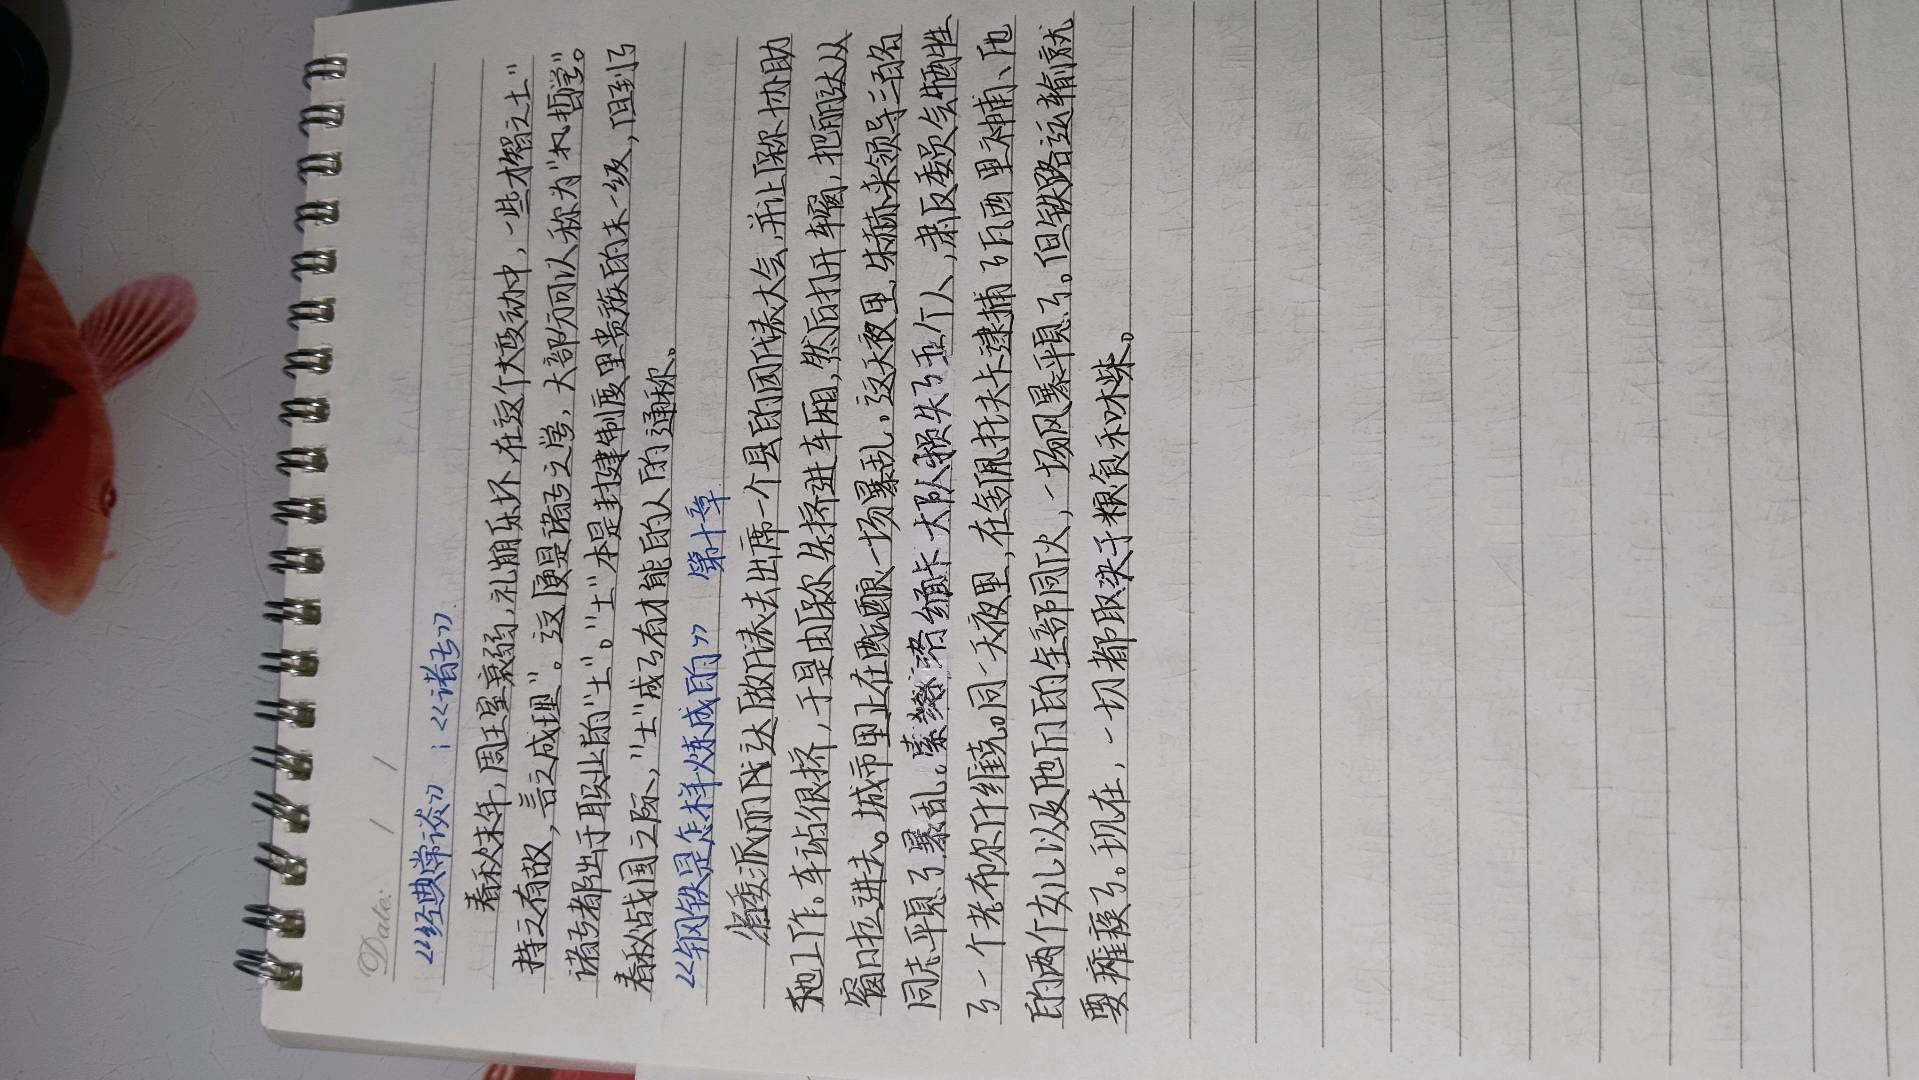 Date: / /
《经典常谈》:《诸子》
春秋末年,周王室衰弱,礼崩乐坏.在这个大变动中,一些才智之士"
持之有故,言之成理"。这便是诸子之学,大部分可以称为"哲学"。
诸子都出于职业的"士"。"士"本是封建制度里贵族的末一级,但到了
春秋战国之际,"士"成了有才能的人的通称。
《钢铁是怎样炼成的》 第十章
省委派丽达做代表去出席一个县的团代表大会,并让保尔协助
她工作。车站很挤,于是由保尔先挤进车厢,然后打开车窗,把丽达从
窗口拉进去。城市里正在酝酿一场暴乱,这天夜里,朱赫来领导三百名
同志平息了暴乱。索洛缅卡大队损失了五个人,肃反委员会牺牲
了一个老布尔什维克。同一天夜里,在舍佩托夫卡逮捕了瓦西里神甫、他
的两个女儿以及他们的全部同伙,一场风暴平息了。但铁路运输就
要瘫痪了。现在,一切都取决于粮食和木柴。